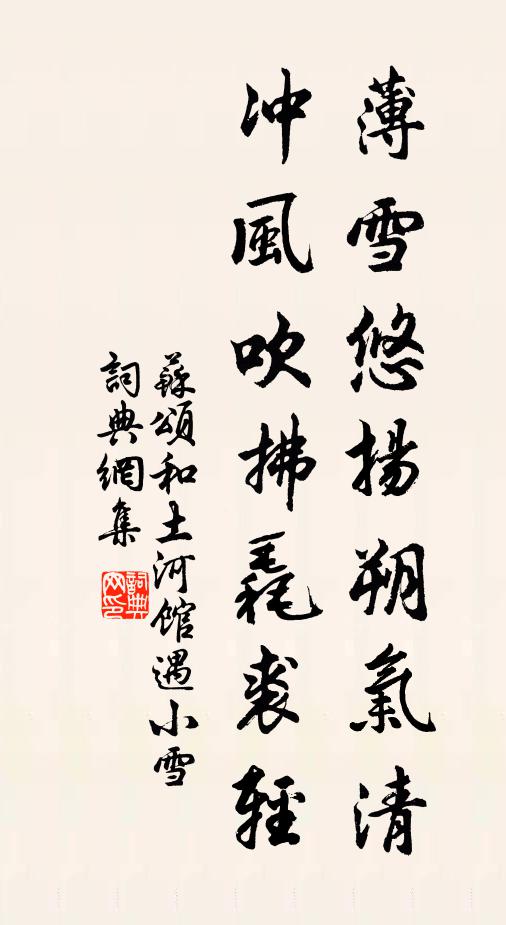 薄雪悠揚朔氣清
冲風吹拂毳裘輕
蘇頌和土河館遇小雪
詞典網集
詞典网印